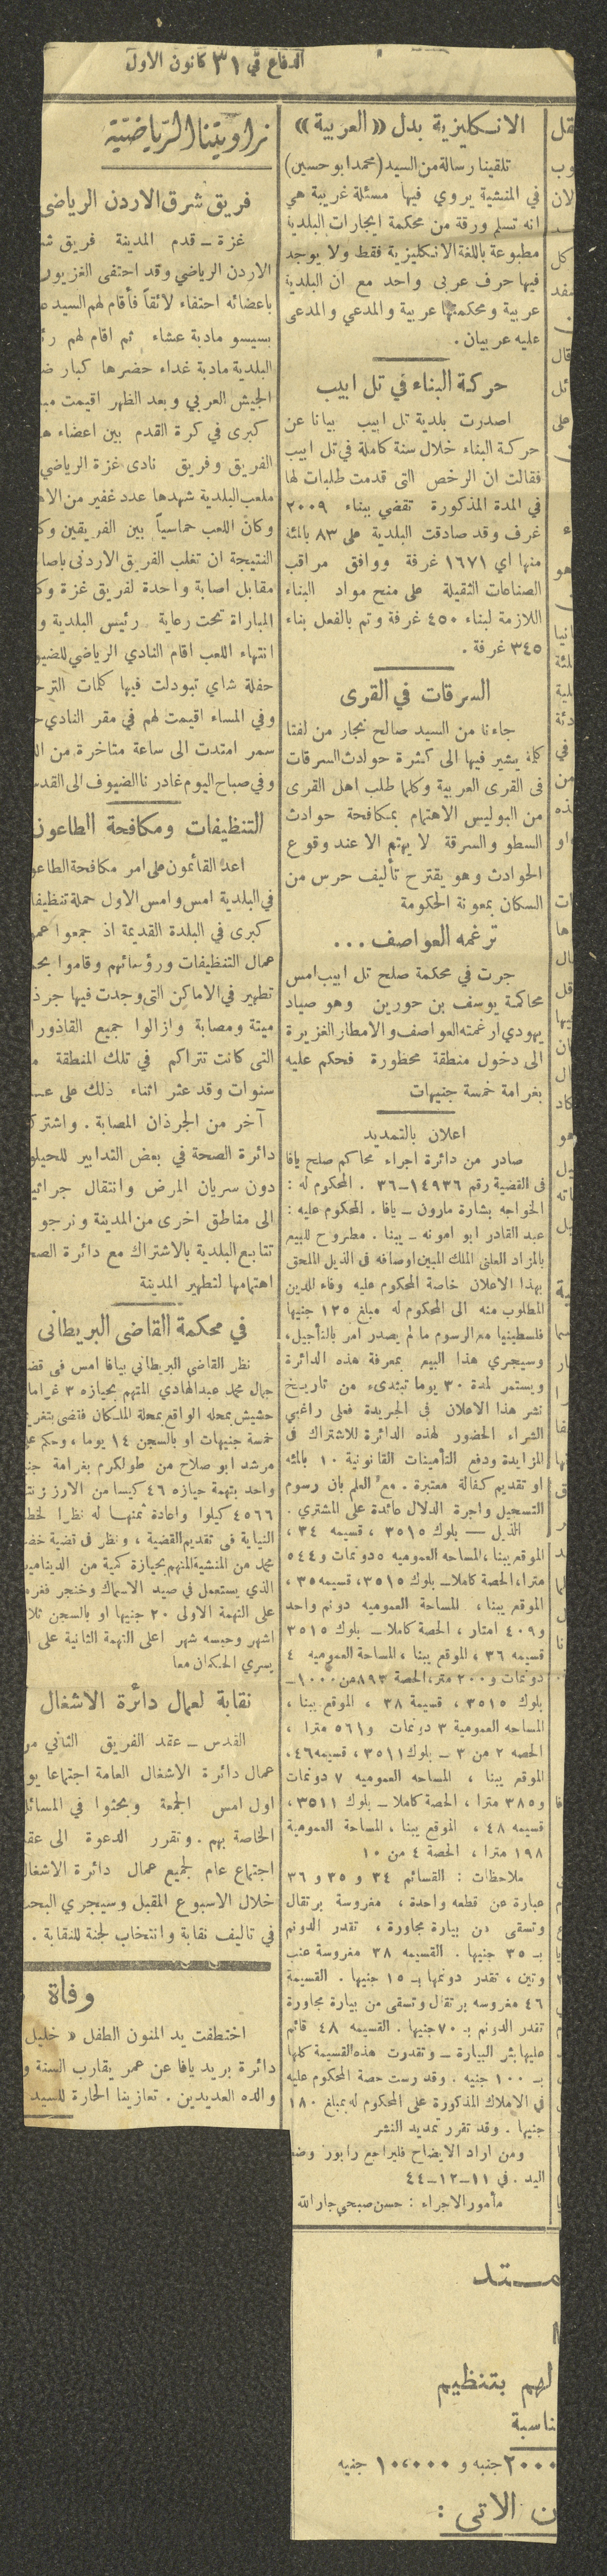 الدفاع في ٣١ كانون الاول
الانكليزية بدل «العربية»
تلقينا رسالة من السيد (محمد ابو حسين)
في المنشية يروي فيها مسئلة غريبة هي
انه تسلم ورقة من محكمة ايجارات البلدية
مطبوعة باللغة الانكليزية فقط ولا يوجد
فيها حرف عربي واحد مع ان البلدية
عربية ومحكمتها عربية والمدعي والمدعى
عليه عربيان .
حركة البناء في تل ابيب
اصدرت بلدية تل ابيب بيانا عن
حركة البناء خلال سنة كاملة في تل ابيب
فقالت ان الرخص التى قدمت طلبات لها
في المدة المذكورة تقضي ببناء ٢٠٠٩
غرف وقد صادقت البلدية على ٨٣ بالمئة
منها اي ١٦٧١ غرفة ووافق مراقب
الصناعات الثقيلة على منح مواد البناء
اللازمة لبناء ٤٥٠ غرفة وتم بالفعل بناء
٣٤٥ غرفة .
السرقات في القرى
جاءنا من السيد صالح نجار من لفتا
كلمة يشير فيها الى كثرة حوادث السرقات
فى القرى العربية وكلما طلب اهل القرى
من البوليس الاهتمام بمكافحة حوادث
السطو والسرقة لا يهتم الا عند وقوع
الحوادث وهو يقترح تأليف حرس من
السكان بمعونة الحكومة
ترغمه العواصف ...
جرت في محكمة صلح تل ابيب امس
محاكمة يوسف بن حورين وهو صياد
يهودي ارغمته العواصف والامطار الغزيرة
الى دخول منطقة محظورة فحكم عليه
بغرامة خمسة جنيهات
اعلان بالتمديد
صادر من دائرة اجراء محاكم صلح يافا
فى القضية رقم ١٤٩٣٦-٣٦ . المحكوم له :
الخواجه بشارة مارون - يافا . المحكوم عليه :
عبد القادر ابو امونه - يبنا . مطروح للبيع
بالمزاد العلنى الملك المبين اوصافه فى الذيل الملحق
بهذا الاعلان خاصة المحكوم عليه وفاء للدين
المطلوب منه الى المحكوم له مبلغ ١٢٥ جنيها
فلسطينيا مع الرسوم ما لم يصدر امر بالتأجيل،
وسيجري هذا البيع بمعرفة هذه الدائرة
ويستمر لمدة ٣٠ يوما تبتدىء من تاريخ
نشر هذا الاعلان فى الجريدة فعلى راغبي
الشراء الحضور لهذه الدائرة للاشتراك فى
المزايدة ودفع التأمينات القانونية ١٠ بالمئه
او تقديم كفالة معتبرة . مع العلم بان رسوم
التسجيل واجرة الدلال عائدة على المشتري .
الذيل — بلوك ٣٥١٥ ، قسيمه ٣٤ ،
الموقع يبنا ، المساحه العموميه ٥ دونمات و٥٤٤
مترا، الحصة كاملا - بلوك ٣٥١٥، قسيمه ٣٥،
الموقع يبنا، المساحة العموميه دونم واحد
و٤٠٩ امتار، الحصة كاملا - بلوك ٣٥١٥
قسيمه ٣٦ ، الموقع يبنا ، المساحة العموميه ٤
دونمات و٢٠٠ متر، الحصة ٨٩٣ من ١٠٠٠ -
بلوك ٣٥١٥ ، قسيمة ٣٨ ، الموقع يبنا ،
المساحه العمومية ٣ دونمات و٥٦١ مترا ،
الحصه ٢ من ٣ - بلوك ٣٥١١ ، قسيمه ٤٦،
الموقع يبنا ، المساحه العموميه ٧ دونمات
و٣٨٥ مترا ، الحصة كاملا - بلوك ٣٥١١ ،
قسيمه ٤٨ ، الموقع يبنا ، المساحة العمومية
١٩٨ مترا ، الحصة ٤ من ١٠
ملاحظات : القسائم ٣٤ و ٣٥ و ٣٦
عبارة عن قطعه واحدة ، مغروسة برتقال
وتسقى من بيارة مجاورة ، تقدر الدونم
بـ ٣٥ جنيها . القسيمه ٣٨ مغروسة عنب
وتين ، تقدر دونمها بـ ١٥ جنيها . القسيمة
٤٦ مغروسه برتقال وتسقى من بيارة مجاورة
تقدر الدونم بـ ٧٠ جنيها . القسيمه ٤٨ قائم
عليها بئر البيارة - وتقدرت هذه القسيمة كلها
بـ ١٠٠ جنيه . وقد رست حصة المحكوم عليه
في الاملاك المذكورة على المحكوم له بمبلغ ١٨٠
جنيها . وقد تقرر تمديد النشر
ومن اراد الايضاح فليراجع رابور وضع
اليد . في ١١-١٢-٤٤
مأمور الاجراء : حسن صبحي جار الله
لهم بتنظيم
ناسبة
٢٠٠٠ جنيه و ١٠،٠٠٠ جنيه
ن الاتى :
زاويتنا الرياضية
فريق شرق الاردن الرياضي
غزة - قدم المدينة فريق شر
الاردن الرياضي وقد احتفى الغزيون
باعضائه احتفاء لائقاً فأقام لهم السيد
بسيسو مادبة عشاء ثم اقام لهم رئ
البلدية مادبة غداء حضرها كبار ض
الجيش العربي وبعد الظهر اقيمت مبا
كبرى في كرة القدم بين اعضاء ه
الفريق وفريق نادى غزة الرياضي
ملعب البلدية شهدها عدد غفير من الاه
وكان اللعب حماسياً بين الفريقين وك
النتيجة ان تغلب الفريق الاردنى باصا
مقابل اصابة واحدة لفريق غزة وك
المباراة تحت رعاية رئيس البلدية و
انتهاء اللعب اقام النادي الرياضي للضيو
حفلة شاي تبودلت فيها كلمات الترح
وفي المساء اقيمت لهم في مقر النادي ح
سمر امتدت الى ساعة متاخرة من الل
وفي صباح اليوم غادرنا الضيوف الى القدس
التنظيفات ومكافحة الطاعون
اعد القائمون على امر مكافحة الطاعو
في البلدية امس وامس الاول حملة تنظيفا
كبرى في البلدة القديمة اذ جمعوا عمو
عمال التنظيفات ورؤسائهم وقاموا بحم
تطهير في الاماكن التى وجدت فيها جرذ
ميتة ومصابة وازالوا جميع القاذورا
التى كانت تتراكم في تلك المنطقة م
سنوات وقد عثر اثناء ذلك على عد
آخر من الجرذان المصابة . واشترك
دائرة الصحة في بعض التدابير للحيلو
دون سريان المرض وانتقال جراثيم
الى مناطق اخرى من المدينة ونرجو
تتابع البلدية بالاشتراك مع دائرة الصح
اهتمامها لتطهير المدينة
في محكمة القاضي البريطانى
نظر القاضي البريطاني بيافا امس فى قض
جمال محمد عبد الهادي المتهم بحيازه ٣ غراما
حشيش بمحله الواقع بمحلة الملكان فقضى بتغري
خمسة جنيهات او بالسجن ١٤ يوما ، وحكم عل
مرشد ابو صلاح من طولكرم بغرامة جن
واحد بتهمة حيازه ٤٦ كيسا من الارز زنت
٤٥٦٦ كيلوا واعادة ثمنها له نظرا لخط
النيابة فى تقديم القضية ، ونظر فى قضية خض
محمد من المنشية المتهم بحيازة كمية من الديناميت
الذي يستعمل في صيد الاسماك وخنجر فغرم
على التهمة الاولى ٢٠ جنيها او بالسجن ثلا
اشهر وحبسه شهر اعلى التهمة الثانية على ا
يسري الحكمان معا
نقابة لعمال دائرة الاشغال
القدس - عقد الفريق الثاني من
عمال دائرة الاشغال العامة اجتماعا يو
اول امس الجمعة وبحثوا في المسائل
الخاصة بهم . وتقرر الدعوة الى عقد
اجتماع عام لجميع عمال دائرة الاشغال
خلال الاسبوع المقبل وسيجري البحث
في تاليف نقابة وانتخاب لجنة للنقابة .
وفاة
اختطفت يد المنون الطفل « خليل
دائرة بريد يافا عن عمر يقارب السنة و
والده العديدين . تعازينا الحارة للسيد